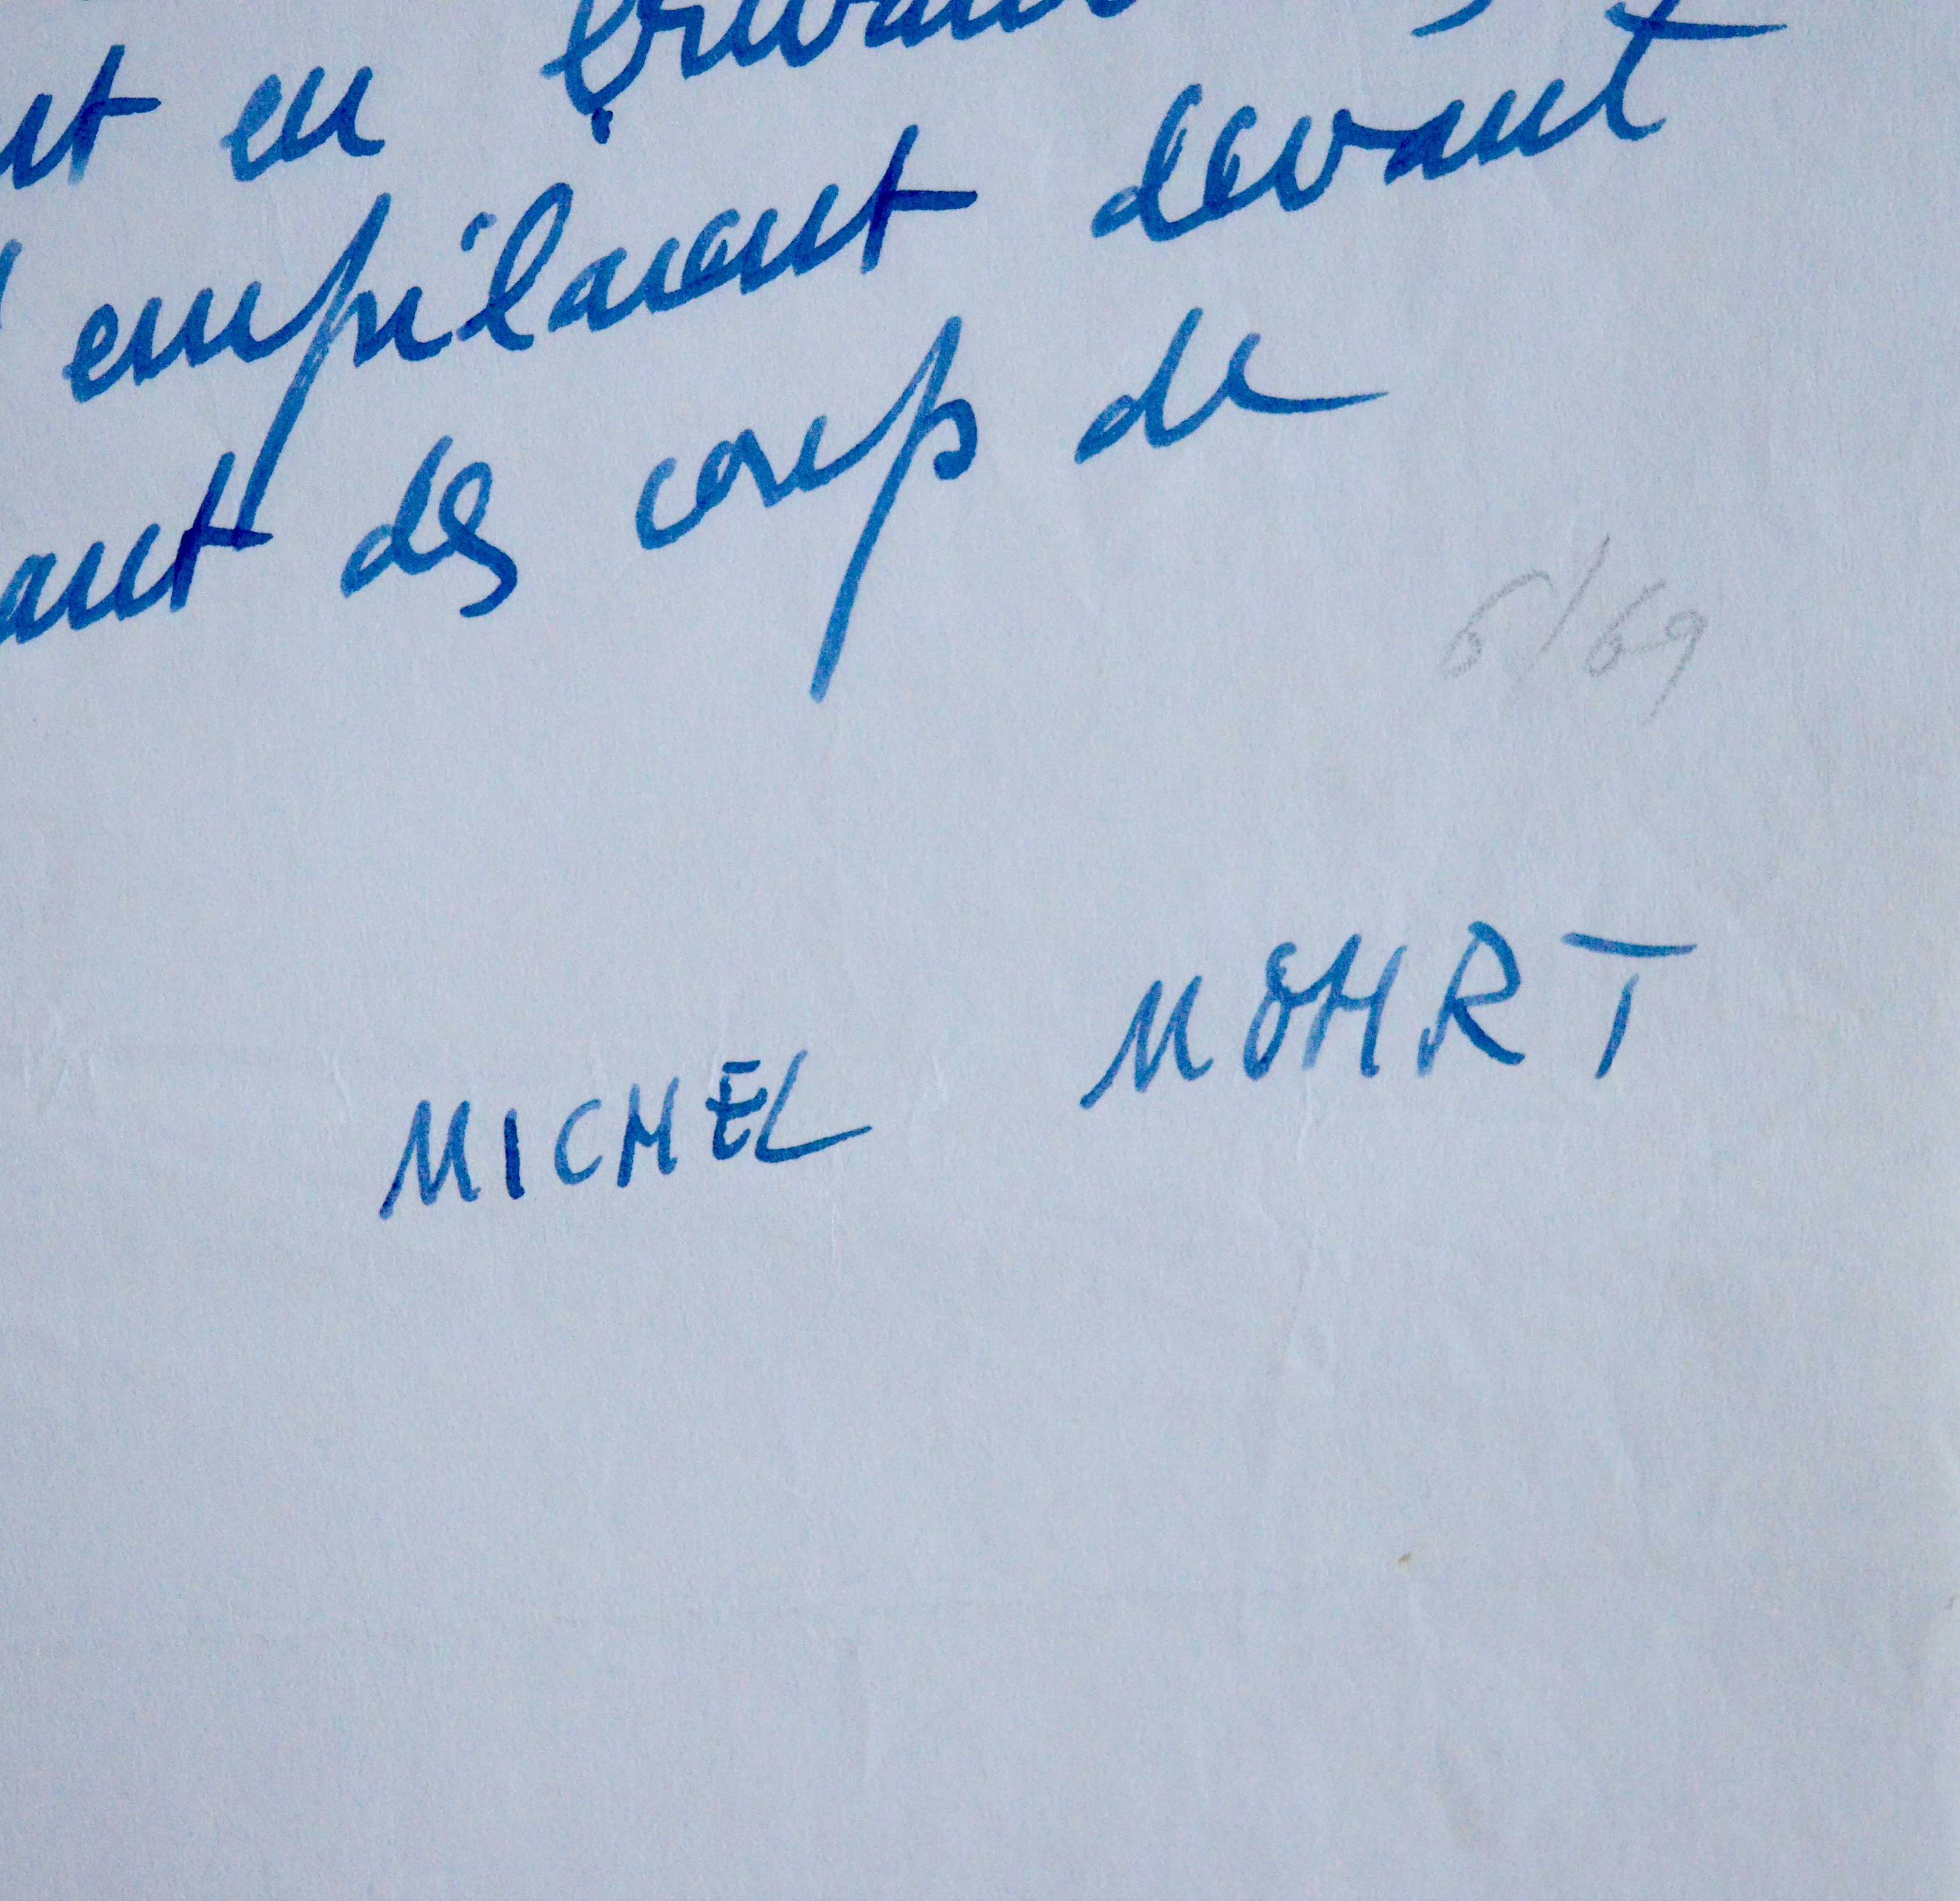 en
empilaient devant
des coups de
6/69
MICHEL MOHRT